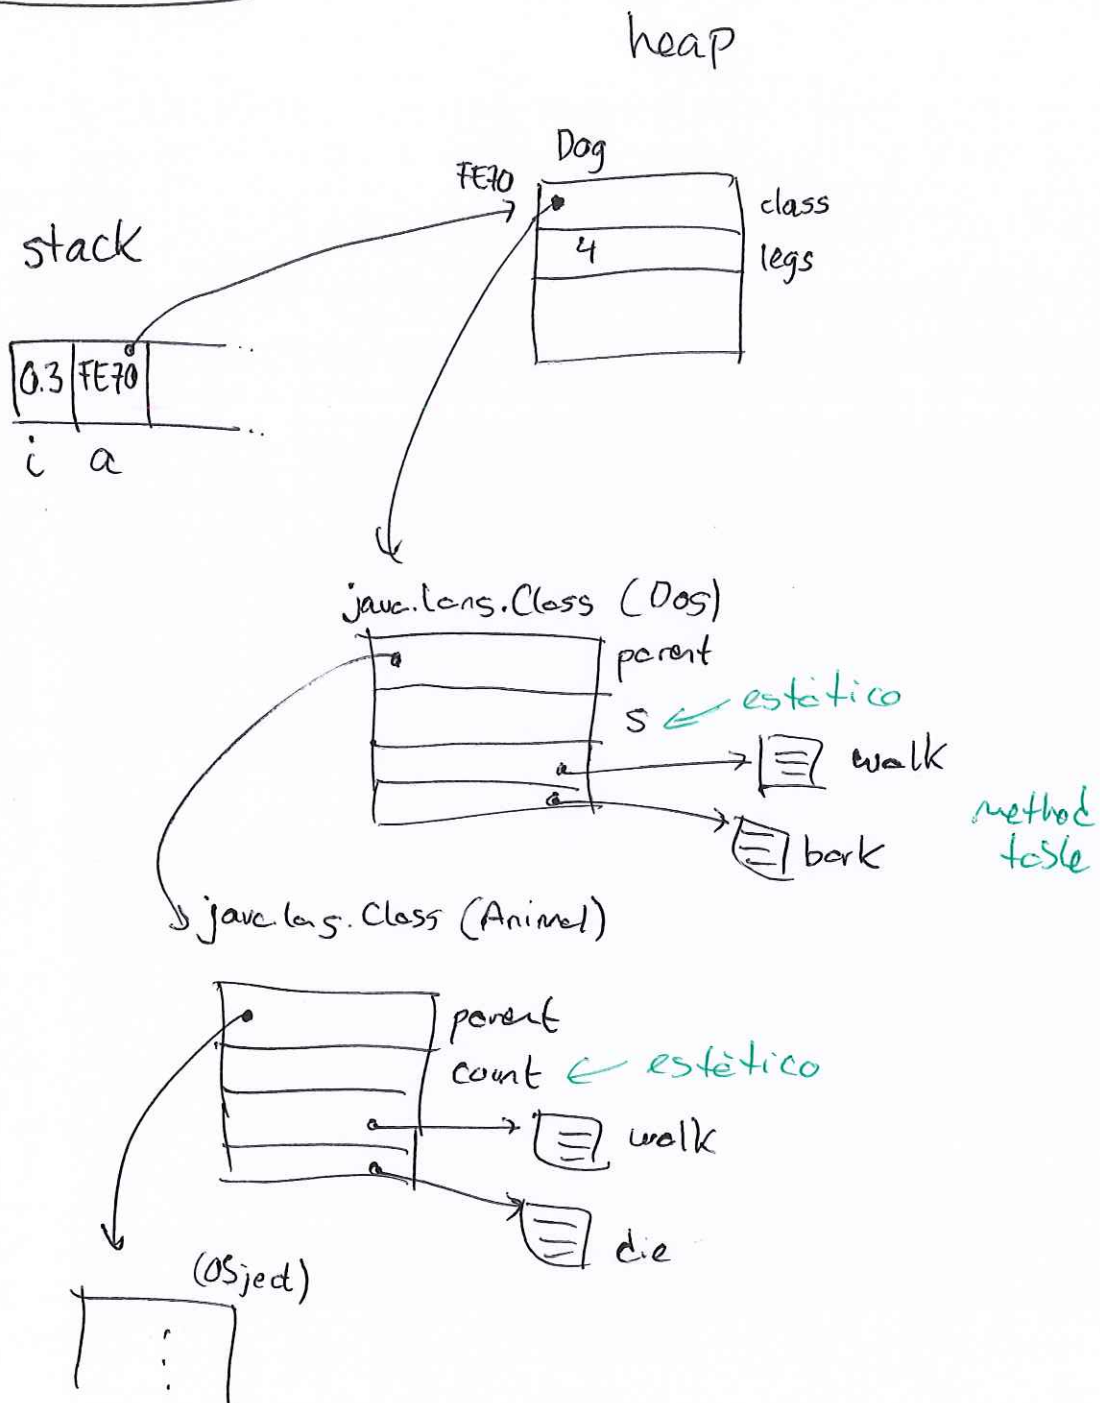 heap
Dog
FE70
class
4
legs
stack
0.3 FE70
i a
java.lang.Class (Dog)
parent
s ← estático
walk
method
table
bark
java.lang.Class (Animal)
parent
count ← estático
walk
die
(Object)